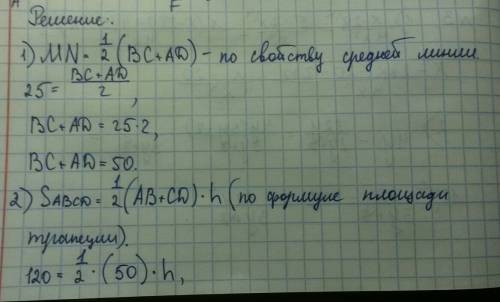 F
Решение:
1) MN = 1/2 (BC+AD) - по свойству средней линии
25 = BC+AD/2,
BC+AD = 25·2,
BC+AD = 50.
2) SABCD = 1/2 (AB+CD)·h (по формуле площади
трапеции).
120 = 1/2 · (50)·h,